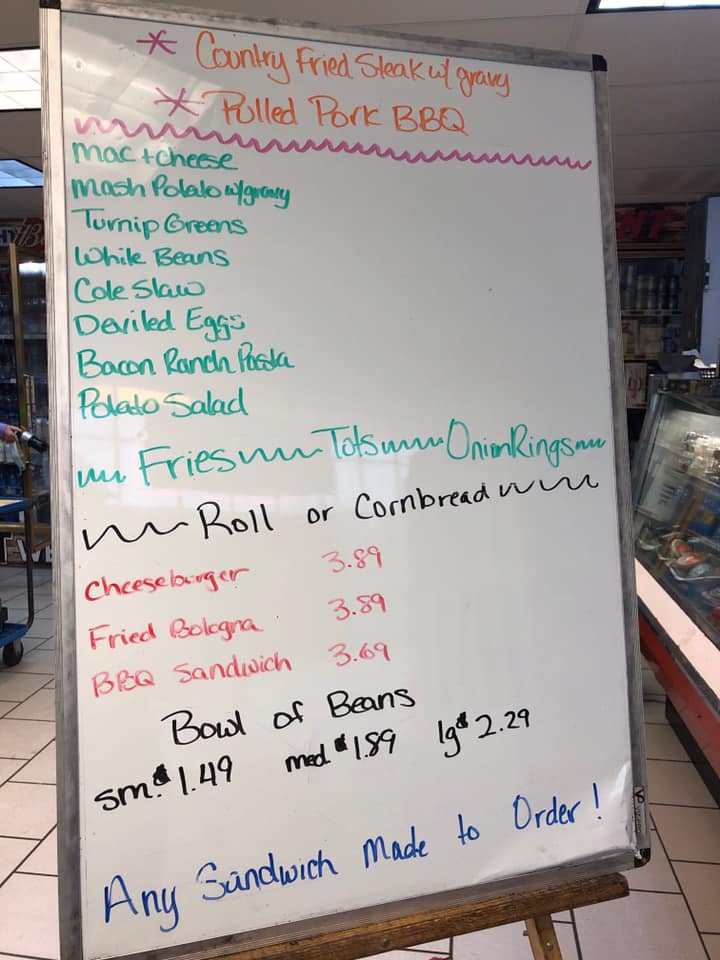 * Country Fried Steak w/ gravy
* Pulled Pork BBQ
Mac + cheese
Mash Potato w/gravy
Turnip Greens
White Beans
Cole Slaw
Deviled Eggs
Bacon Ranch Pasta
Potato Salad
Fries Tots Onion Rings
Roll or Cornbread
Cheeseburger 3.89
Fried Bologna 3.89
BBQ Sandwich 3.69
Bowl of Beans
sm. $1.49 med. $1.89 lg $2.29
Any Sandwich Made to Order!